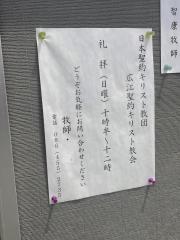 日本聖約キリスト教団
広江聖約キリスト教会
礼拝(日曜)十時半~十二時
どうぞお気軽にお問い合わせください
牧師・
電話
智康牧師